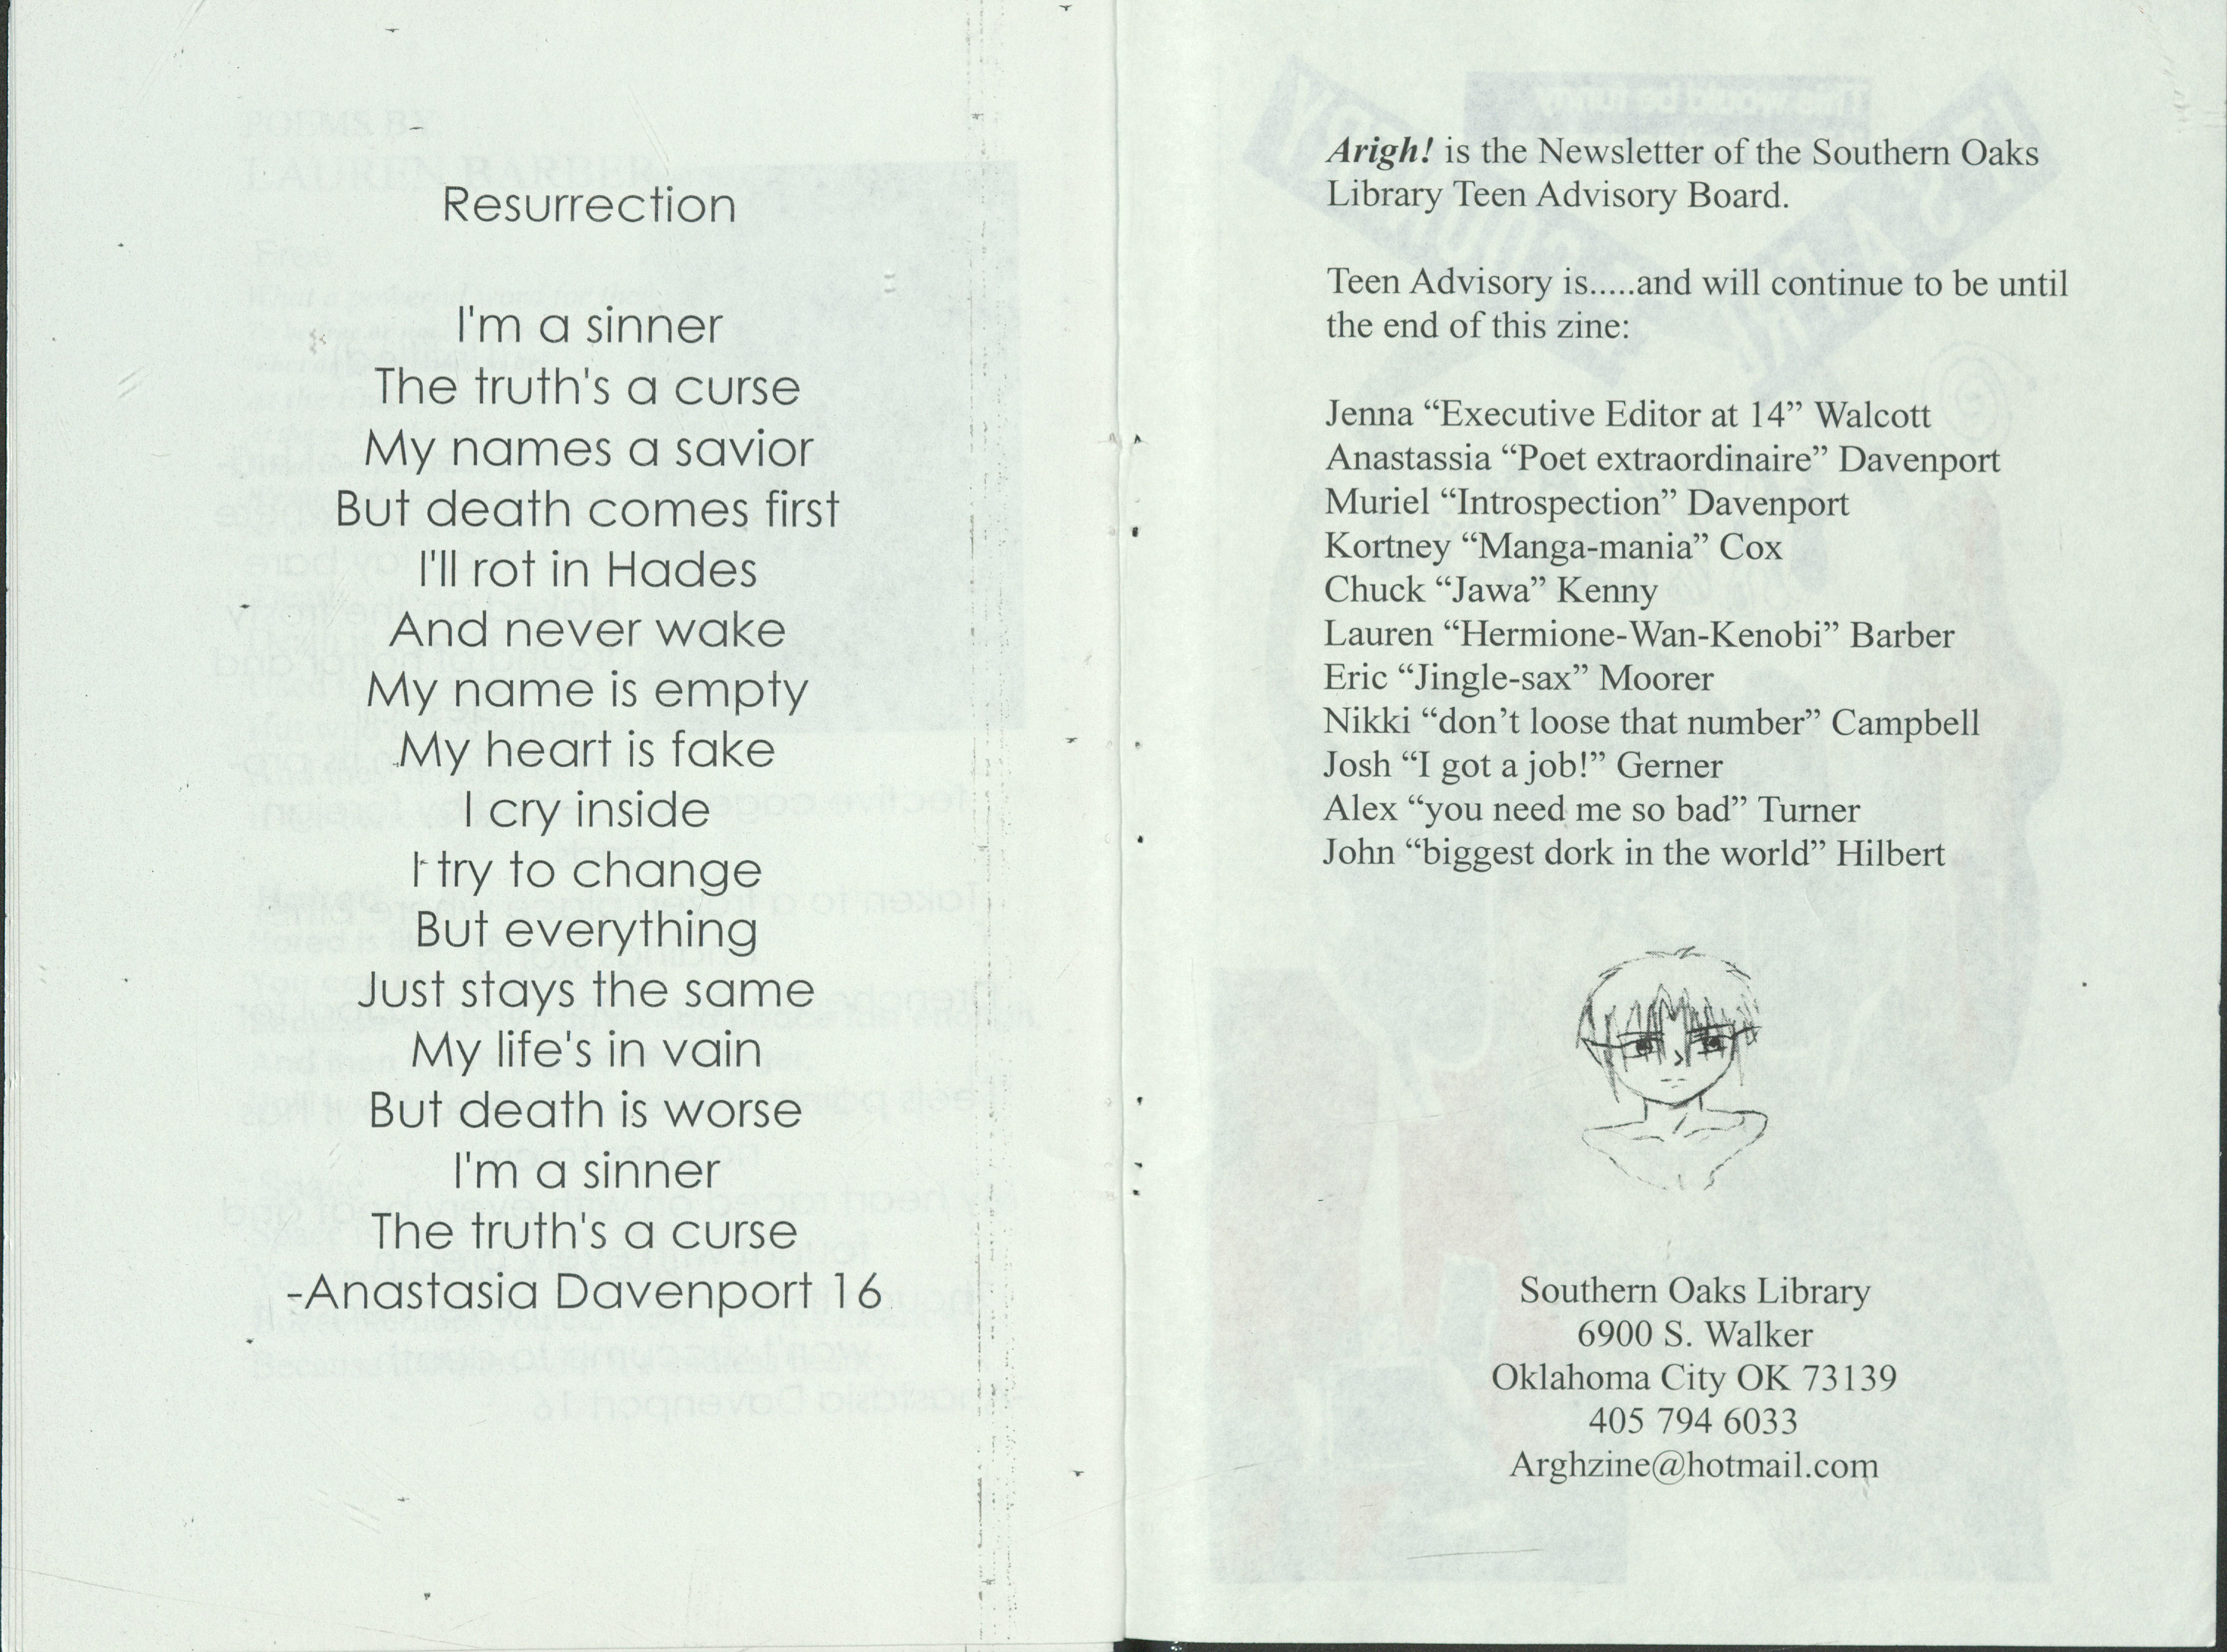 Resurrection
I'm a sinner
The truth's a curse
My names a savior
But death comes first
I'll rot in Hades
And never wake
My name is empty
My heart is fake
I cry inside
I try to change
But everything
Just stays the same
My life's in vain
But death is worse
I'm a sinner
The truth's a curse
-Anastasia Davenport 16
Arigh! is the Newsletter of the Southern Oaks
Library Teen Advisory Board.
Teen Advisory is.....and will continue to be until
the end of this zine:
Jenna “Executive Editor at 14” Walcott
Anastassia “Poet extraordinaire” Davenport
Muriel “Introspection” Davenport
Kortney “Manga-mania” Cox
Chuck “Jawa” Kenny
Lauren “Hermione-Wan-Kenobi” Barber
Eric “Jingle-sax” Moorer
Nikki “don’t loose that number” Campbell
Josh “I got a job!” Gerner
Alex “you need me so bad” Turner
John “biggest dork in the world” Hilbert
Southern Oaks Library
6900 S. Walker
Oklahoma City OK 73139
405 794 6033
Arghzine@hotmail.com